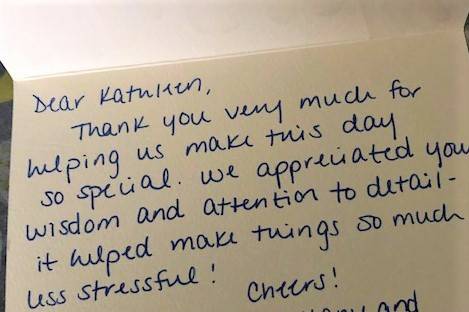 Dear Kathleen,
Thank you very much for
helping us make this day
so special. We appreciated you
wisdom and attention to detail-
it helped make things so much
less stressful!
Cheers!
and